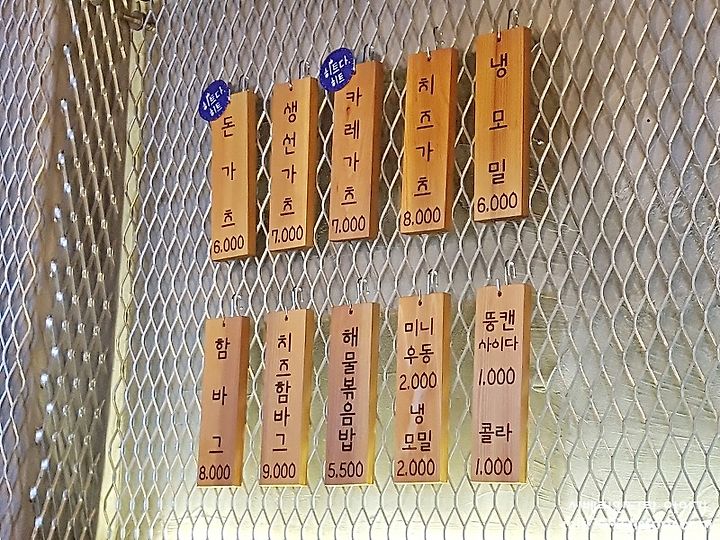 히트다.
히트
돈가츠
6.000
생선가츠
7.000
히트다.
히트
카레가츠
7.000
치즈가츠
8.000
냉모밀
6.000
함바그
8.000
치즈함바그
9.000
해물볶음밥
5.500
미니
우동
2.000
냉
모밀
2.000
뚱캔
사이다
1.000
콜라
1.000